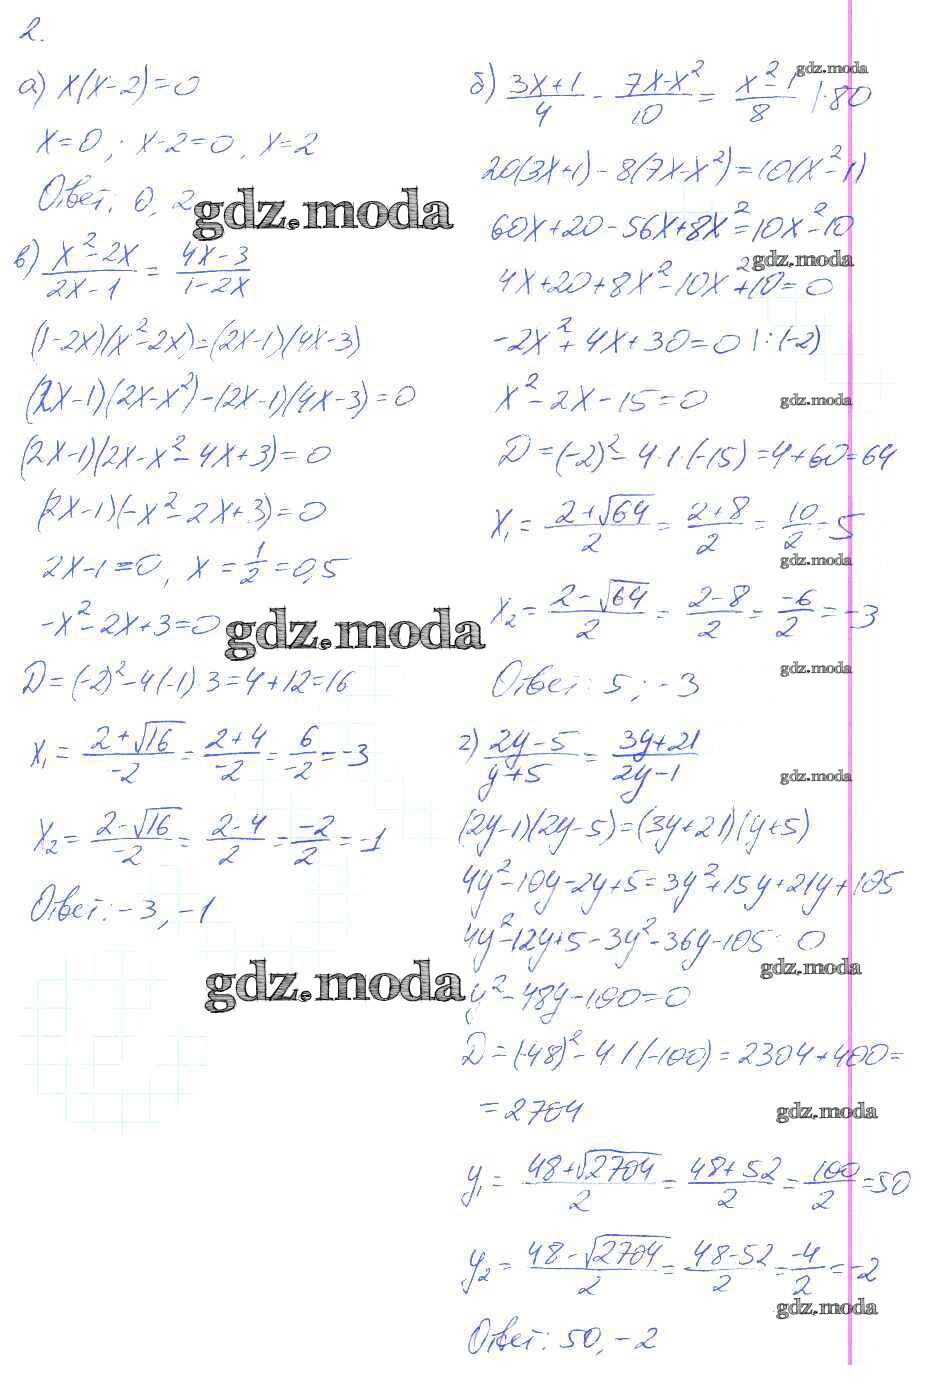 2.
а) x(x-2)=0
x=0; x-2=0, x=2
Ответ: 0, 2
gdz.moda
в) (x²-2x)/(2x-1) = (4x-3)/(1-2x)
(1-2x)(x²-2x)=(2x-1)(4x-3)
(2x-1)(2x-x²)-(2x-1)(4x-3)=0
(2x-1)(2x-x²-4x+3)=0
(2x-1)(-x²-2x+3)=0
2x-1=0, x=1/2=0,5
-x²-2x+3=0
gdz.moda
D=(-2)²-4(-1)·3=4+12=16
x₁=(2+√16)/(-2)=(2+4)/(-2)=6/(-2)=-3
x₂=(2-√16)/(-2)=(2-4)/2=(-2)/2=-1
Ответ: -3, -1
gdz.moda
б) (3x+1)/4 - (7x-x²)/10 = (x²-1)/8 |·80
gdz.moda
20(3x+1)-8(7x-x²)=10(x²-1)
60x+20-56x+8x²=10x²-10
gdz.moda
4x+20+8x²-10x²+10=0
-2x²+4x+30=0 |:(-2)
x²-2x-15=0
gdz.moda
D=(-2)²-4·1·(-15)=4+60=64
x₁=(2+√64)/2=(2+8)/2=10/2=5
gdz.moda
x₂=(2-√64)/2=(2-8)/2=(-6)/2=-3
gdz.moda
Ответ: 5; -3
г) (2y-5)/(y+5)=(3y+21)/(2y-1)
gdz.moda
(2y-1)(2y-5)=(3y+21)(y+5)
4y²-10y-2y+5=3y²+15y+21y+105
4y²-12y+5-3y²-36y-105 0
gdz.moda
y²-48y-100=0
D=(-48)²-4·1(-100)=2304+400=
=2704
gdz.moda
y₁=(48+√2704)/2=(48+52)/2=100/2=50
y₂=(48-√2704)/2=(48-52)/2=(-4)/2=-2
gdz.moda
Ответ: 50, -2